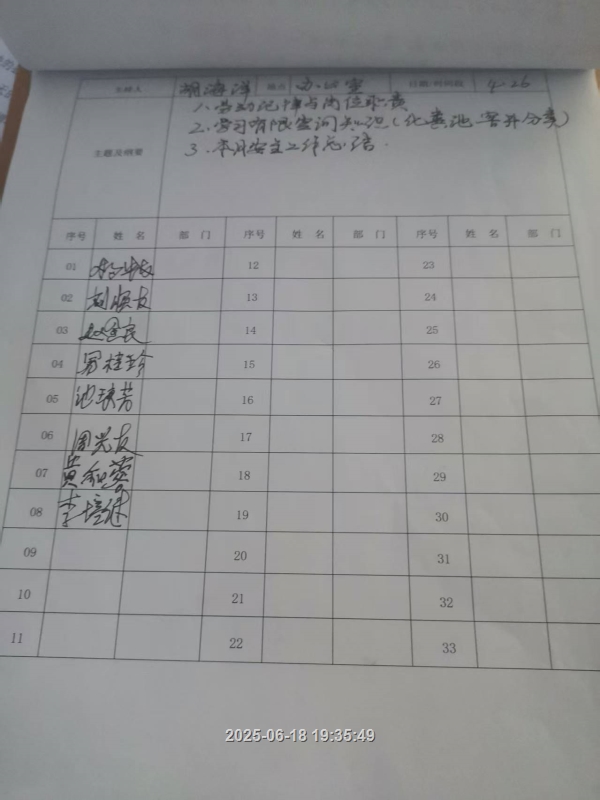 主持人 胡海洋 地点 办公室 日期/时间段 4-26
主题及纲要
1、劳动纪律与岗位职责
2、学习有限空间知识(化粪池、窨井分类)
3、本月安全工作总结.
序号 姓 名 部 门 序号 姓 名 部 门 序号 姓 名 部 门
01 12 23
02 刘顺友 13 24
03 赵建民 14 25
04 罗桂珍 15 26
05 池球芳 16 27
06 周光友 17 28
07 黄和蓉 18 29
08 李培健 19 30
09 20 31
10 21 32
11 22 33
2025-06-18 19:35:49